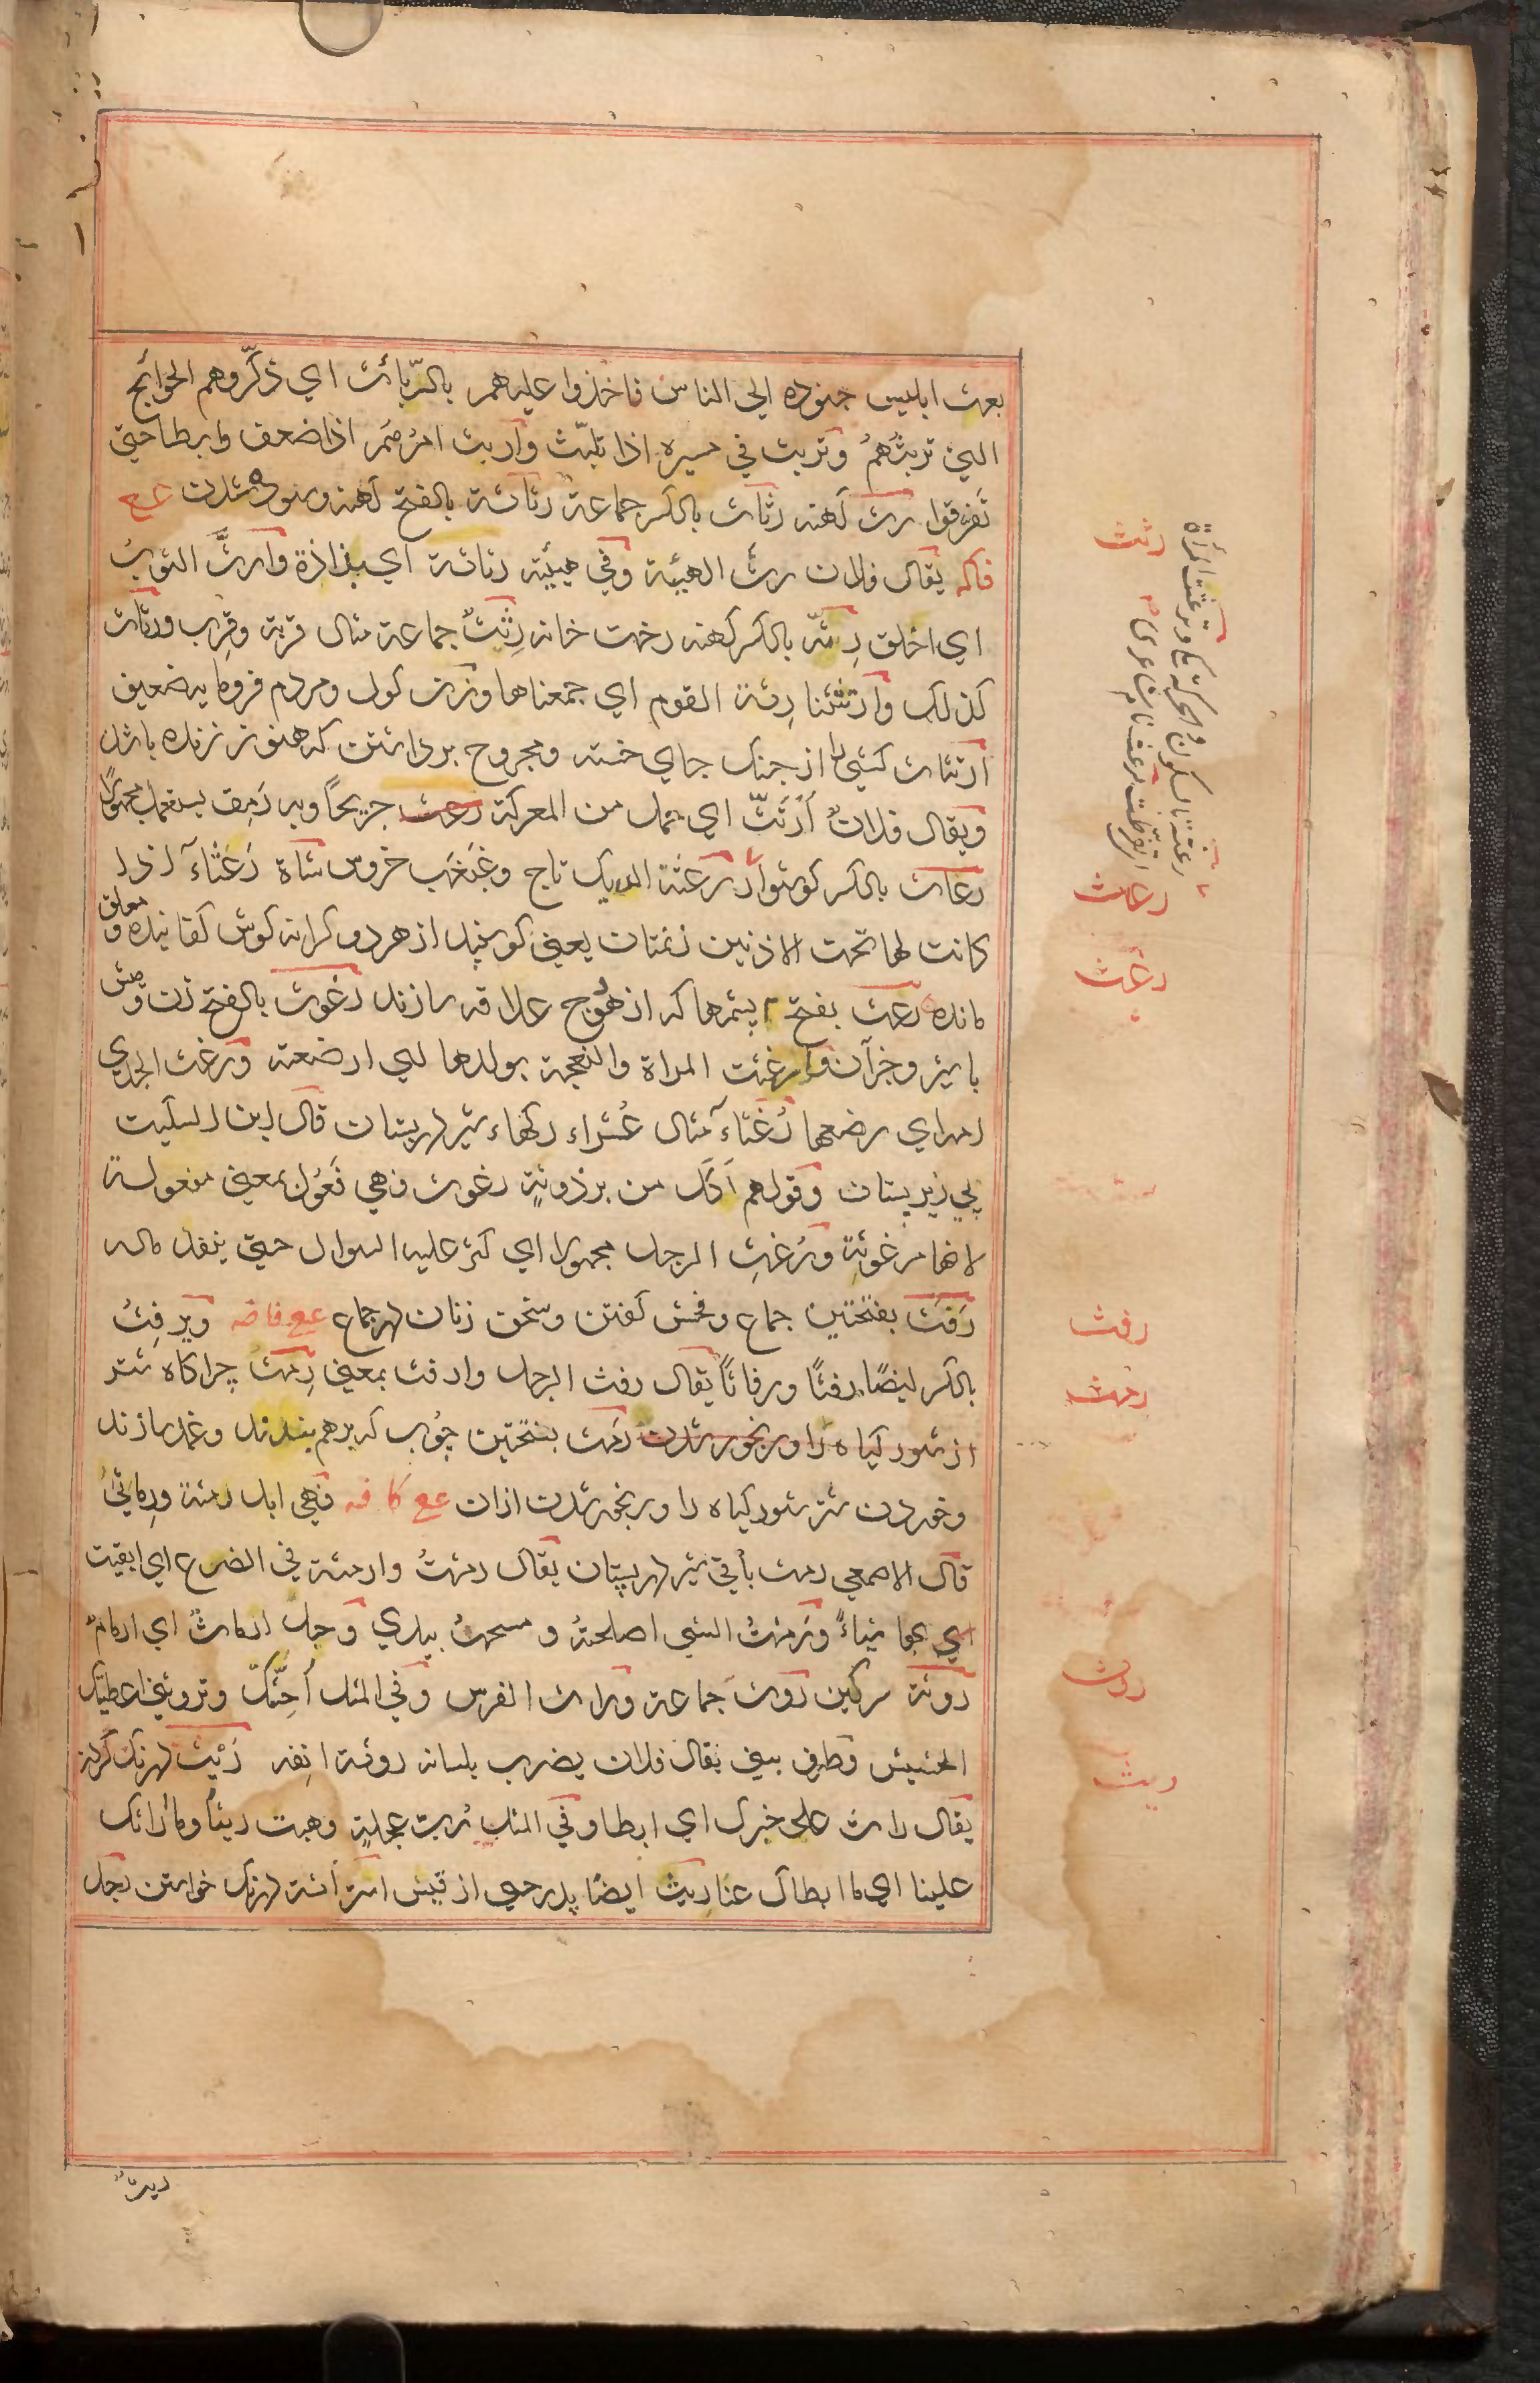 بعث ابلیس جنوده الی الناس فاخذوا علیهم بالرّبائث ای ذکّروهم الحوائج
التی تربثُهُمْ وتربث فی مسیره اذا تلبّث واربث امرُهُم اذا ضعف وابطا حتی
تَفرقوا رث کهنه رثاث بالکسر جماعة رثاثة بالفتح کهنه وسوده شدن عع
فاکه یقال فلان رثُّ الهیئة وفی هیئته رثاثة ای بذاذة وارثَّ الثوبُ
ای اخلق رِثّه بالکسر کهنه رخت خانه رِثَثٌ جماعة مثال قربة وقِرب ورثاث
کذلک وارتثثنا رِثة القوم ای جمعناها وزن کول ومردم فرومایه ضعیف
ارتثاث کسی را از جنک جای خسته ومجروح برداشتن که هنوز زنده باشد
ویقال فلانٌ اُرْتُثَّ ای حمل من المعرکة رعث جریحًا وبه رَمِق یستعمل مجهولًا
رعاث بالکسر کوشوار رعثة الدیک تاج وغبغب خروس شاة رَعْثَآء اذا
کانت لها تحت الاذنین زنمتان یعنی کوسپند از هر دو کرانه کوش کفانیده و معلق
مانده رعث بفتح ۲ پشمها که از هودج علاقه سازند رغوث بالفتح زن و میش
با شیر وجز آن وارغثت المراة والنعجة بولدها ای ارضعته ورغث الجدی
امه ای رضعها رُغثاءَ مثال عُشراء رکهاء شیر در پستان قال ابن السکیت
پی زیر پستان وقولهم آکَل من برذونةٍ رغوث فهی فَعُول بمعنی مفعولة
لانها مرغوثةٌ ورُغِث الرجل مجهولا ای کثر علیه السوال حتی ینفد ماله
رَفَث بفتحتین جماع وفحش کفتن وسخن زنان در جماع عع فاضه ویرفِثُ
بالکسر ایضًا رفثًا ورفاثًا یقال رفث الرجل وارفث بمعنی رِمث چراکاه شتر
از شور کیاه را ورنجور شدن رمَث بفتحتین چوب که بر هم بندند وعمد سازند
وخوردن شتر شور کیاه را ورنجور شدن ازان عع کافه فهی ابل رمثة ورِماثیُ
قال الاصمعی رمث باقی شیر در پستان یقال رمثتُ وارمثة فی الضرع ای ابقیت
ای بها شیاءً ورَمثتُ الشی اصلحتهُ ومسحتهُ بیدی وحبل ارماثٌ ای ارمامٌ
روثة سرکین روث جماعة وراث الفرس وفی المثل اُحِشُّکَ وتروثنی اعطیک
الحشیش وطرف بینی یقال فلان یضرب بلسانه روثة انفه رَیْث درنک کردن
یقال راث علی خبرک ای ابطا وفی المثل رُبّ عجلةٍ وهبت ریثًا وما راثک
علینا ای ما ابطاک عنا ریث ایضًا پدر حی از قیس استراثة درنک خواستن رجل
ریثٌ
رثث
رعاث
رعث
رفث
رمث
روث
ریث